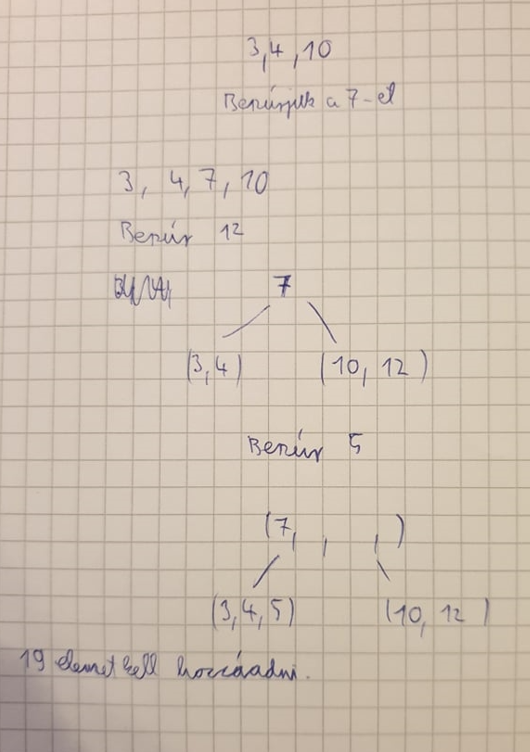 3,4,10
Beszúrjuk a 7-et
3, 4, 7, 10
Beszúr 12
7
(3,4) (10, 12)
Beszúr 5
(7, , , )
(3,4,5) (10, 12)
19 elemet kell hozzáadni.